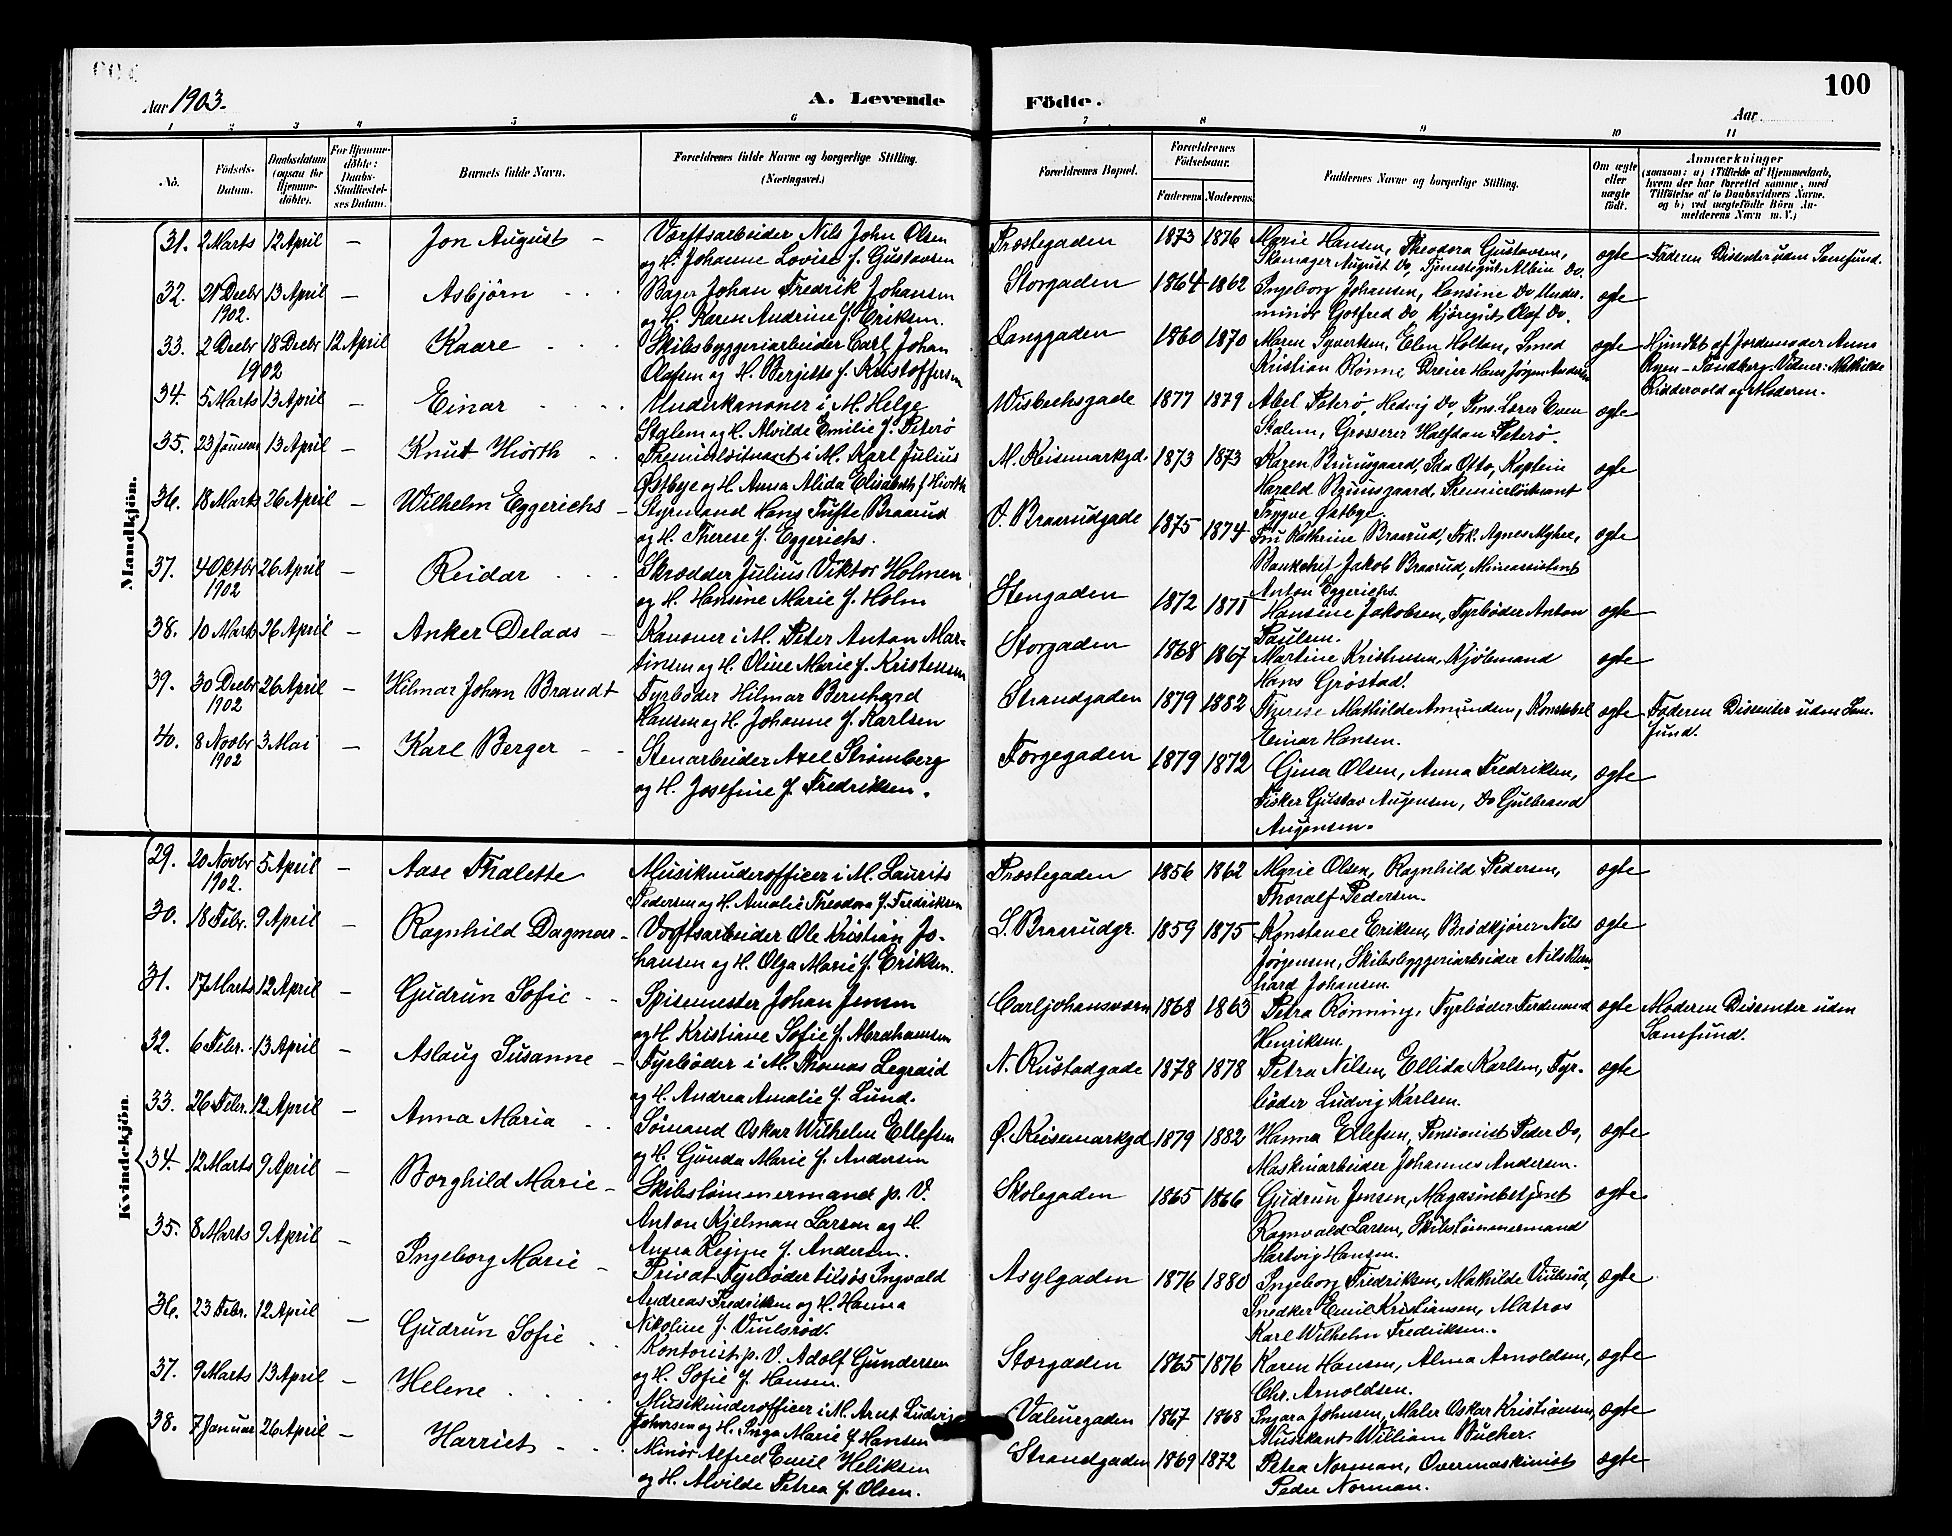 100
Aar 1903.
A. Levende Födte.
Aar
1 2 3 4 5 6 7 8 9 10 11
No.
Födsels-Datum.
Daabsdatum (ogsaa for Hjemme-döbte).
For Hjemme-döbte: Daabs-Stadfæstel-ses Datum.
Barnets fulde Navn.
Forældrenes fulde Navne og borgerlige Stilling. (Næringsvei.)
Forældrenes Bopæl.
Forældrenes Födselsaar.
Faderens Moderens
Faddernes Navne og borgerlige Stilling.
Om ægte eller uægte födt.
Anmærkninger (saasom: a) i Tilfælde af Hjemmedaab, hvem der har forrettet samme, med Tilföielse af to Daabsvidners Navne, og b) ved uægtefödte Börn An-melderens Navn m. V.)
Mandkjön.
31. 2 Marts 12 April — Jon August – Værftsarbeider Nils John Olsen
og H. Johanne Lovise f. Gustavsen
Præstegaden 1873 1876 Marie Hansen, Theodora Gustavsen,
Skomager August Do, Tjenestegut Albin Do.
ægte Faderen Dissenter uden Samfund.
32. 21 Decbr 1902. 13 April — Asbjörn Bager Johan Fredrik Johansen
og H. Karen Andrine f. Eriksen.
Storgaden 1864 1862 Ingeborg Johansen, Hansine Do Under-
minör Gotfred Do Kjöregut Olaf Do.
ægte
33. 2 Decbr 1902 18 Decbr 12 April Kaare Skibsbyggeriarbeider Carl Johan
Olafsen og H. Berjitte f. Kristoffersen
Langgaden 1860 1870 Maren Syvertsen, Elen Holten, Smed
Kristian Rönne Dreier Hans Jörgen Andersen
ægte Hjmdbt af Jordemoder Anna
Ryen – Tandberg. Vidner: Mathilde
Riddervold og Moderen.
34. 5 Marts 13 April — Einar Underkanoner i M. Helge
Stalem og H. Alvilde Emilie f. Peterö
Wisbechsgade 1877 1879 Abel Peterö, Hedvig Do, Pens. Lærer Even
Stalem, Grosserer Halfdan Peterö.
ægte
35. 23 Januar 13 April — Knut Hiorth Premierlöitnant i M. Karl Julius
Östbye og H. Anna Alida Elisabeth f Hiorth
M. Keisemarkgd. 1873 1873 Karen Bruusgaard, Ida Otto, Kaptein
Harald Bruusgaard, Premierlöitnant
Trygve Östbye.
ægte
36. 18 Marts 26 April — Wilhelm Eggerichs – Styrmand Hans Tufte Braarud
og H. Therese f. Eggerichs.
V. Braarudgade 1875 1874 Fru Kathrine Braarud, Frk. Agnes Myhre,
Bankchef Jakob Braarud, Mineassistent
Anton Eggerichs.
ægte
37. 4 Oktbr 1902 26 April — Reidar Skrædder Julius Viktor Holmen
og H. Hansine Marie f. Holm
Stengaden 1872 1871 Hansine Jakobsen, Fyrböder Anton
Paulsen.
ægte
38. 10 Marts 26 April — Anker Delaas – Kanoner i M. Peter Anton Mar-
tinsen og H. Oline Marie f. Kristensen
Storgaden 1868 1867 Martine Kristensen, Kjöbmand
Hans Gröstad.
ægte
39. 30 Decbr 1902 26 April — Hilmar Johan Brandt Fyrböder Hilmar Bernhard
Hansen og H. Johanne f. Karlsen
Strandgaden 1879 1882 Therese Mathilde Amundsen, Konstabel
Einar Hansen.
ægte Faderen Dissenter uden Sam-
fund.
40. 8 Novbr 1902 3 Mai — Karl Berger – Stenarbeider Axel Strömberg
og H. Josefine f. Fredriksen.
Torgegaden 1879 1872 Gina Olsen, Anna Fredriksen,
Fisker Gustav Augensen, Do Gulbrand
Augensen.
ægte
Kvindekjön.
29. 20 Novbr 1902. 5 April — Aase Thalette Musikunderofficer i M. Laurits
Pedersen og H. Amalie Theodora f. Fredriksen
Præstegaden 1856 1862 Marie Olsen, Ragnhild Pedersen,
Thoralf Pedersen.
ægte
30. 18 Febr. 9 April — Ragnhild Dagmar – Værftsarbeider Ole Kristian Jo-
hansen og H. Olga Marie f. Eriksen.
S. Braarudgr. 1859 1875 Konstance Eriksen, Brödkjörer Nils
Jörgensen, Skibsbyggeriarbeider Nils Bern-
hard Johansen.
ægte
31. 17 Marts 12 April — Gudrun Sofie Spisemester Johan Jensen
og H. Kristiane Sofie f. Abrahamsen
Carljohansværn 1868 1863 Petra Rönning, Fyrböder Ferdinand
Henriksen.
ægte Moderen Dissenter uden
Samfund.
32. 6 Febr. 13 April — Aslaug Susanne – Fyrböder i M. Thomas Legraid
og H. Andrea Amalie f. Lund.
N. Rustadgade 1878 1878 Petra Nilsen, Ellida Karlsen, Fyr-
böder Ludvig Karlsen.
ægte
33. 26 Febr. 12 April — Anna Maria Sömand Oskar Wilhelm Ellefsen
og H. Gunda Marie f. Andersen
Ö. Keisemarkgd 1879 1882 Hanna Ellefsen, Pensionist Peder Do,
Maskinarbeider Johannes Andersen.
ægte
34. 12 Marts 9 April — Borghild Marie – Skibstömmermand p. V.
Anton Kjelman Larsen og H.
Anna Regine f. Andersen.
Skolegaden 1865 1866 Gudrun Jensen, Magasinbetjent
Ragnvald Larsen, Skibstömmermand
Hartvig Hansen.
ægte
35. 8 Marts 9 April — Ingeborg Marie – Privat Fyrböder tilsös Ingvald
Andreas Fredriksen og H. Hanna
Nikoline f. Viulsröd.
Asylgaden 1876 1880 Ingeborg Fredriksen, Mathilde Viulsröd,
Snedker Emil Kristiansen, Matros
Karl Wilhelm Fredriksen.
ægte
36. 23 Febr. 12 April — Gudrun Sofie Kontorist p. V. Adolf Gundersen
og H. Sofie f. Hansen.
Storgaden 1865 1876 Karen Hansen, Alma Arnoldsen,
Chr. Arnoldsen.
ægte
37. 9 Marts 13 April — Helene Musikunderofficer i M. Arnt Ludvig
Johnsen og H. Inga Marie f. Hansen
Valeurgaden 1867 1868 Ingara Johnsen, Maler Oskar Kristiansen,
Musikant William Bücher.
ægte
38. 7 Januar 26 April — Harriet Minör Alfred Emil Heliksen
og H. Alvilde Petrea f. Olsen.
Strandgaden 1869 1872 Petra Norman, Overmaskinist
Peder Norman.
ægte